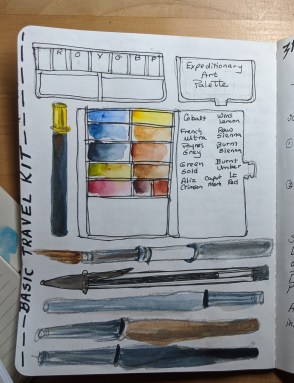 R O Y G B P
Expeditionary
Art
Palette
BASIC TRAVEL KIT
Cobalt Wins Lemon
French Ultra Raw Sienna
Paynes Grey Burnt Sienna
Green Gold Burnt Umber
Aliz Crimson Caput Mort Lt Red